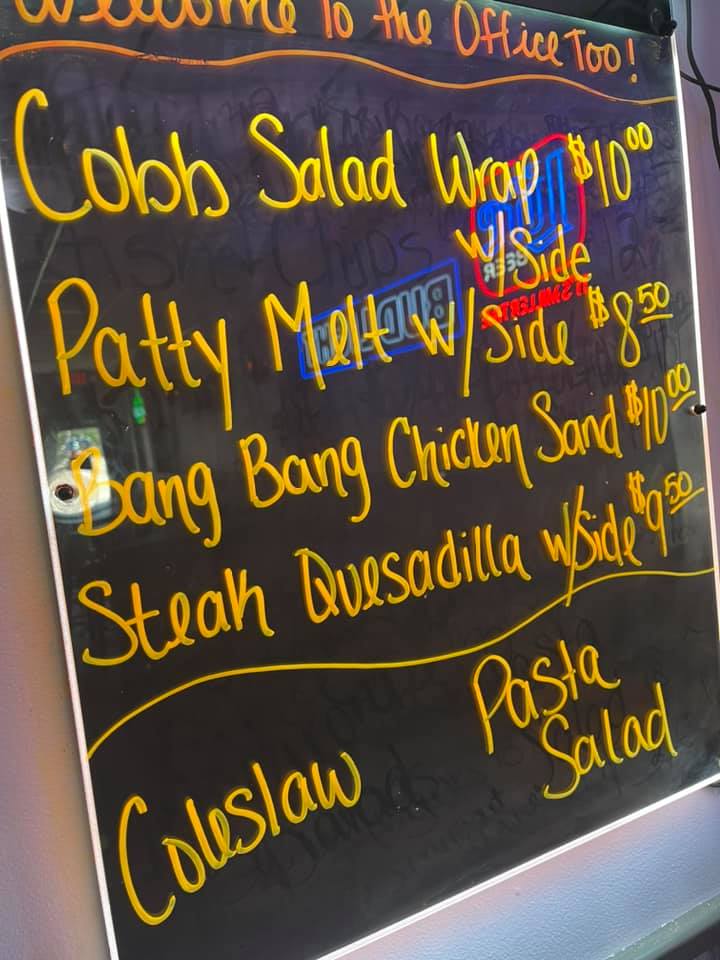 Welcome To the Office Too!
Cobb Salad Wrap $10.00
w/Side
Patty Melt w/Side $8.50
Bang Bang Chicken Sand $10.00
Steak Quesadilla w/Side $9.50
Pasta
Salad
Coleslaw
BUD LIGHT
Lite
BEER